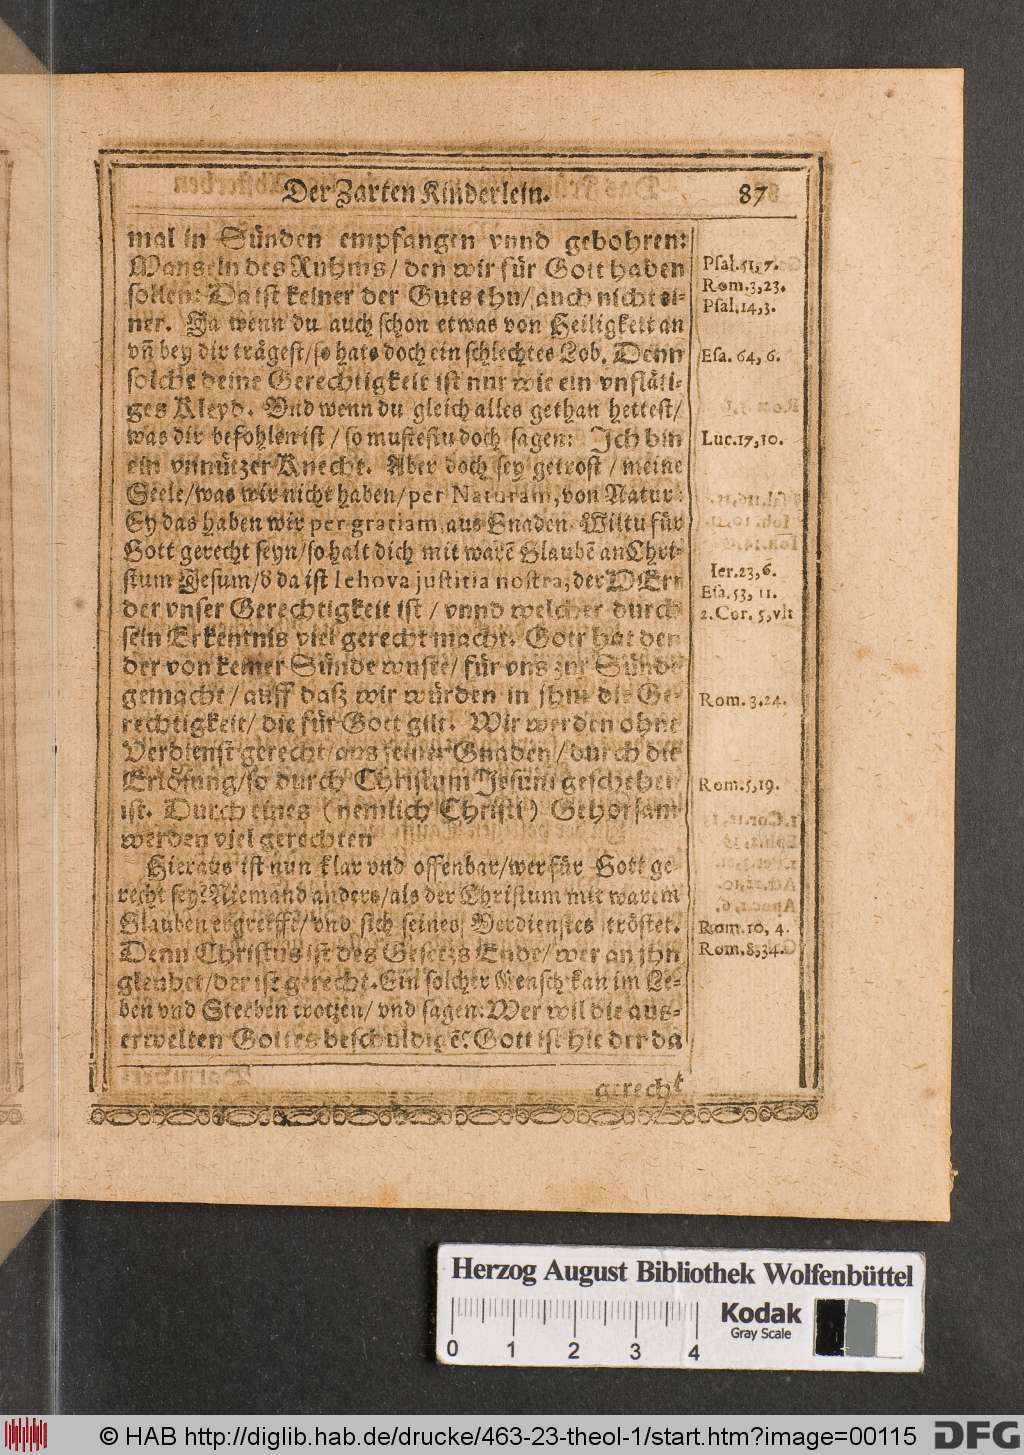 Der Zarten Kinderlein. 87
mal in Sünden empfangen vnnd gebohren:
Mangeln des Ruhms/ den wir für Gott haben
sollen: Da ist keiner der Guts thu/ auch nicht ei-
ner. Ja wenn du auch schon etwas von Heiligkeit an
vñ bey dir trägest/so hats doch ein schlechtes Lob. Denn
solche deine Gerechtigkeit ist nur wie ein vnfläti-
ges Kleyd. Vnd wenn du gleich alles gethan hettest/
was dir befohlen ist / so mustestu doch sagen: Ich bin
ein vnnützer Knecht. Aber doch sey getrost / meine
Seele/was wir nicht haben/per Naturam, von Natur:
Ey das haben wir per gratiam, aus Gnaden. Wiltu für
Gott gerecht seyn/so halt dich mit warē Glaubē an Chri-
stum Jesum/ď da ist Iehova justitia nostra, der HErr
der vnser Gerechtigkeit ist / vnnd welcher durch
sein Erkentnis viel gerecht macht. Gott hat den
der von keiner Sünde wuste/ für vns zur Sünde
gemacht / auff daß wir würden in jhm die Ge-
rechtigkeit/ die für Gott gilt. Wir werden ohne
Verdienst gerecht/aus seiner Gnaden/ durch die
Erlösung/so durch Christum Jesum geschehen
ist. Durch eines (nemlich Christi) Gehorsam
werden viel gerechten
Hieraus ist nun klar vnd offenbar/wer für Gott ge-
recht sey? Niemand anders/als der Christum mit warem
Glauben ergreifft/vnd sich seines Verdienstes tröstet.
Denn Christus ist des Gesetzs Ende/ wer an jhn
gleubet/der ist gerecht. Ein solcher Mensch kan im Le-
ben vnd Sterben trotzen/ vnd sagen: Wer wil die aus-
erwelten Gottes beschuldigē? Gott ist hie der da
gerecht
Psal.51,7.
Rom.3,23.
Psal.14,3.
Esa. 64, 6.
Luc.17,10.
Ier.23,6.
Esa.53, 11.
2.Cor. 5,vlt
Rom. 3.24.
Rom.5,19.
Rom. 10, 4.
Rom.8,34.
Herzog August Bibliothek Wolfenbüttel
0 1 2 3 4
Kodak
Gray Scale
© HAB http://diglib.hab.de/drucke/463-23-theol-1/start.htm?image=00115
DFG